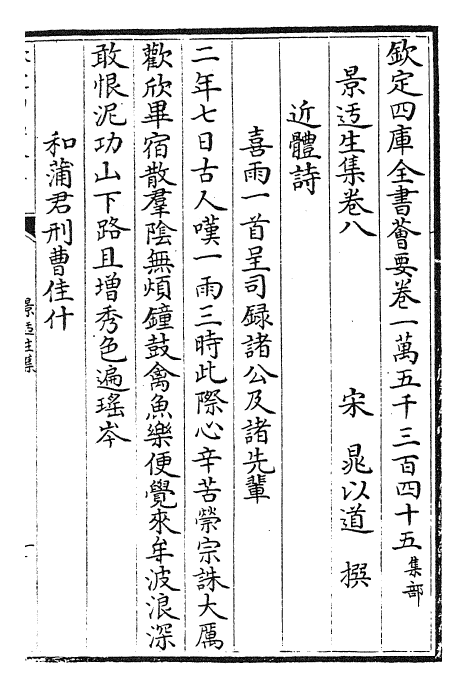 欽定四庫全書薈要卷一萬五千三百四十五集部
景迃生集卷八
宋 晁以道 撰
近體詩
喜雨一首呈司録諸公及諸先輩
二年七日古人嘆一雨三時此際心辛苦禜宗誅大厲
歡欣畢宿散羣陰無煩鐘鼓禽魚樂便覺來牟波浪深
敢恨泥功山下路且增秀色遍瑤岑
和蒲君刑曹佳什
景迃生集
一